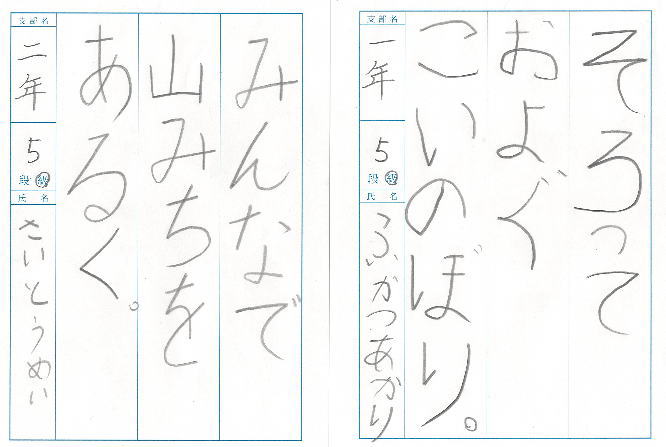 そろって
およぐ
こいのぼり。
支部名
一年
5
段級
氏名
ふかつあかり
みんなで
山みちを
あるく。
支部名
二年
5
段級
氏名
さいとうめい